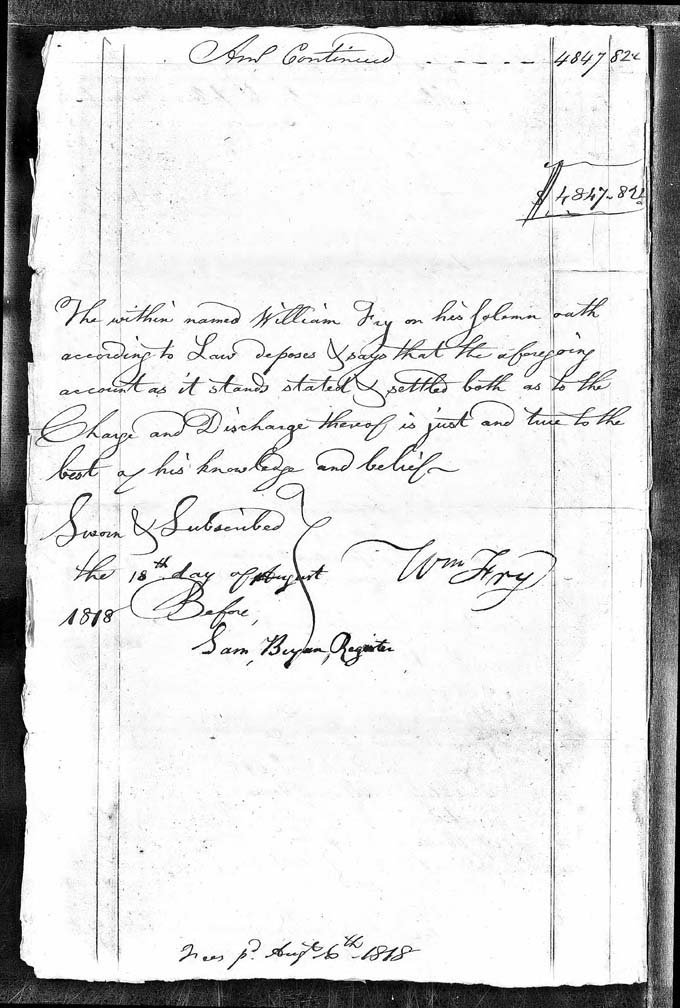 Amt Continued - - - - - 4847 82
$ 4847-82
The within named William Fry on his Solemn oath
according to Law deposes & says that the aforegoing
account as it stands stated & settled both as to the
Charge and Discharge thereof is just and true to the
best of his knowledge and belief
Sworn & Subscribed
the 18th day of August
1818 Before,
Sam, Bryan, Register
Wm Fry
Augt 1818